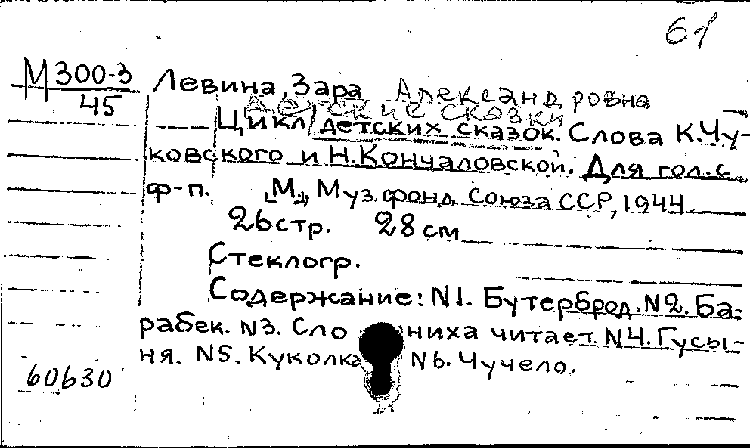 61
М 300-3
45
Левина, Зара Александровна
Детские сказки
Цикл детских сказок. Слова К. Чу-
ковского и Н. Кончаловской. Для гол. с
ф-п. [М.], Муз. фонд Союза ССР, 1944
26 стр. 28 см
Стеклогр.
Содержание: N1. Бутерброд. N2. Ба-
рабек. N3. Слониха читает. N4. Гусы-
ня. N5. Куколка N6. Чучело.
60630